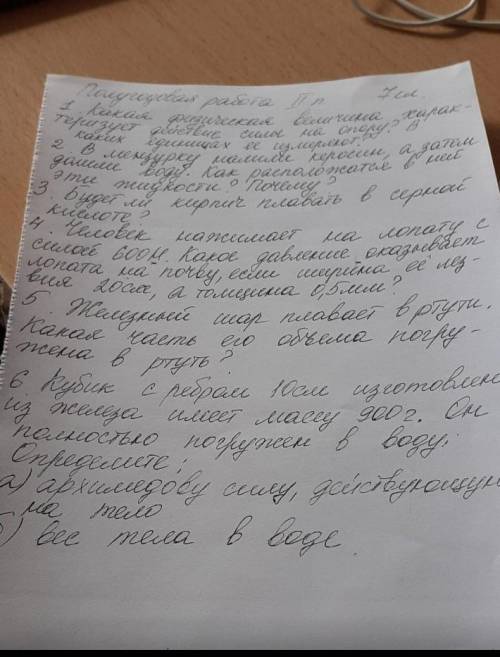 Полугодовая работа II п. 7кл.
1. Какая физическая величина харак-
теризует действие силы на опору? В
каких единицах ее измеряют?
2. В мензурку налили керосин, а затем
долили воду. Как расположатся в ней
эти жидкости? Почему?
3. Будет ли кирпич плавать в серной
кислоте?
4. Человек нажимает на лопату с
силой 600Н. Какое давление оказывает
лопата на почву, если ширина ее лез-
вия 20см, а толщина 0,5мм?
5. Железный шар плавает в ртути.
Какая часть его объема погру-
жена в ртуть?
6 Кубик с ребром 10см изготовлен
из железа имеет массу 900г. Он
полностью погружен в воду.
Определите:
а) архимедову силу, действующую
на тело
б) вес тела в воде